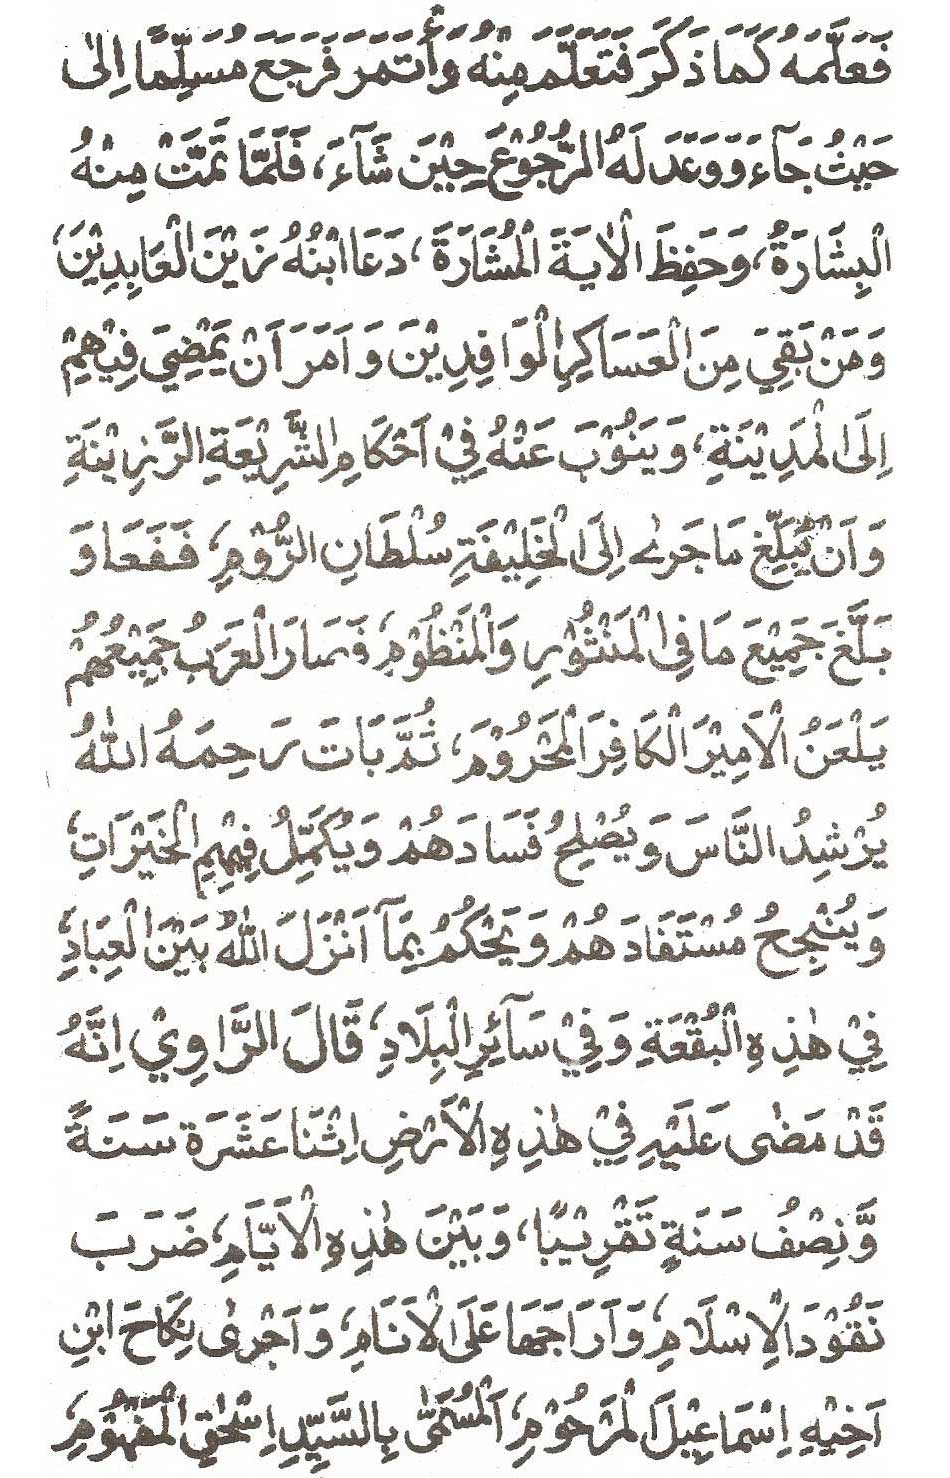 فَعَلَّمَهُ كَمَا ذَكَرَ فَتَعَلَّمَ مِنْهُ وَأْتَمَرَ فَرَجَعَ مُسَلِّمًا اِلىٰ
حَيْثُ جَآءَ وَوَعَدَ لَهُ الرُّجُوْعَ حِيْنَ شَآءَ، فَلَمَّا تَمَّتْ مِنْهُ
الْبِشَارَةُ، وَحَفِظَ الْاٰيَةَ الْمُشَارَةَ، دَعَا ابْنُهُ زَيْنَ الْعَابِدِيْنَ،
وَمَنْ بَقِيَ مِنَ الْعَسَاكِرِ الْوَافِدِيْنَ وَاَمَرَ اَنْ يَمْضِيَ فِيْهِمْ
اِلَى الْمَدِيْنَةِ، وَيَنُوْبَ عَنْهُ فِيْ اَحْكَامِ الشَّرِيْعَةِ الرَّزِيْنَةِ
وَاَنْ يُبَلِّغَ مَاجَرىٰ اِلَى الْخَلِيْفَةِ سُلْطَانِ الرُّوْمِ، فَفَعَا وَ
بَلَّغَ جَمِيْعَ مَا فِي الْمَنْثُوْرِ وَالْمَنْظُوْمِ، فَصَارَ الْعَرَبُ جَمِيْعُهُمْ
يَلْعَنُ الْاَمِيْرَ الْكَافِرَ الْمَحْرُوْمَ، ثُمَّ بَاتَ رَحِمَهُ اللّٰهُ
يُرْشِدُ النَّاسَ وَيُصْلِحُ فَسَادَهُمْ وَيُكَمِّلُ فِيْهِمِ الْخَيْرَاتِ،
وَيُنْجِحُ مُسْتَفَادَهُمْ وَيَحْكُمُ بِمَآ اَنْزَلَ اللّٰهُ بَيْنَ الْعِبَادِ،
فِيْ هٰذِهِ الْبُقْعَةِ وَفِيْ سَآئِرِ الْبِلَادِ، قَالَ الرَّاوِيْ اِنَّهُ
قَدْ مَضٰى عَلَيْهِ فِيْ هٰذِهِ الْاَرْضِ اِثْنَا عَشَرَةَ سَنَةً
وَّنِصْفُ سَنَةٍ تَقْرِيْبًا، وَبَيْنَ هٰذِهِ الْاَيَّامِ، ضَرَبَ
نَقُوْدَ الْاِسْلَامِ، وَاَرَاجَهَا عَلَى الْاَنَامِ، وَاَجْرىٰ نِكَاحَ ابْنِ
اَخِيْهِ اِسْمَاعِيْلَ الْمَرْحُوْمِ، اَلْمُسَمّٰى بِالسَّيِّدِ اِسْحٰقِ الْمَفْهُوْمِ،